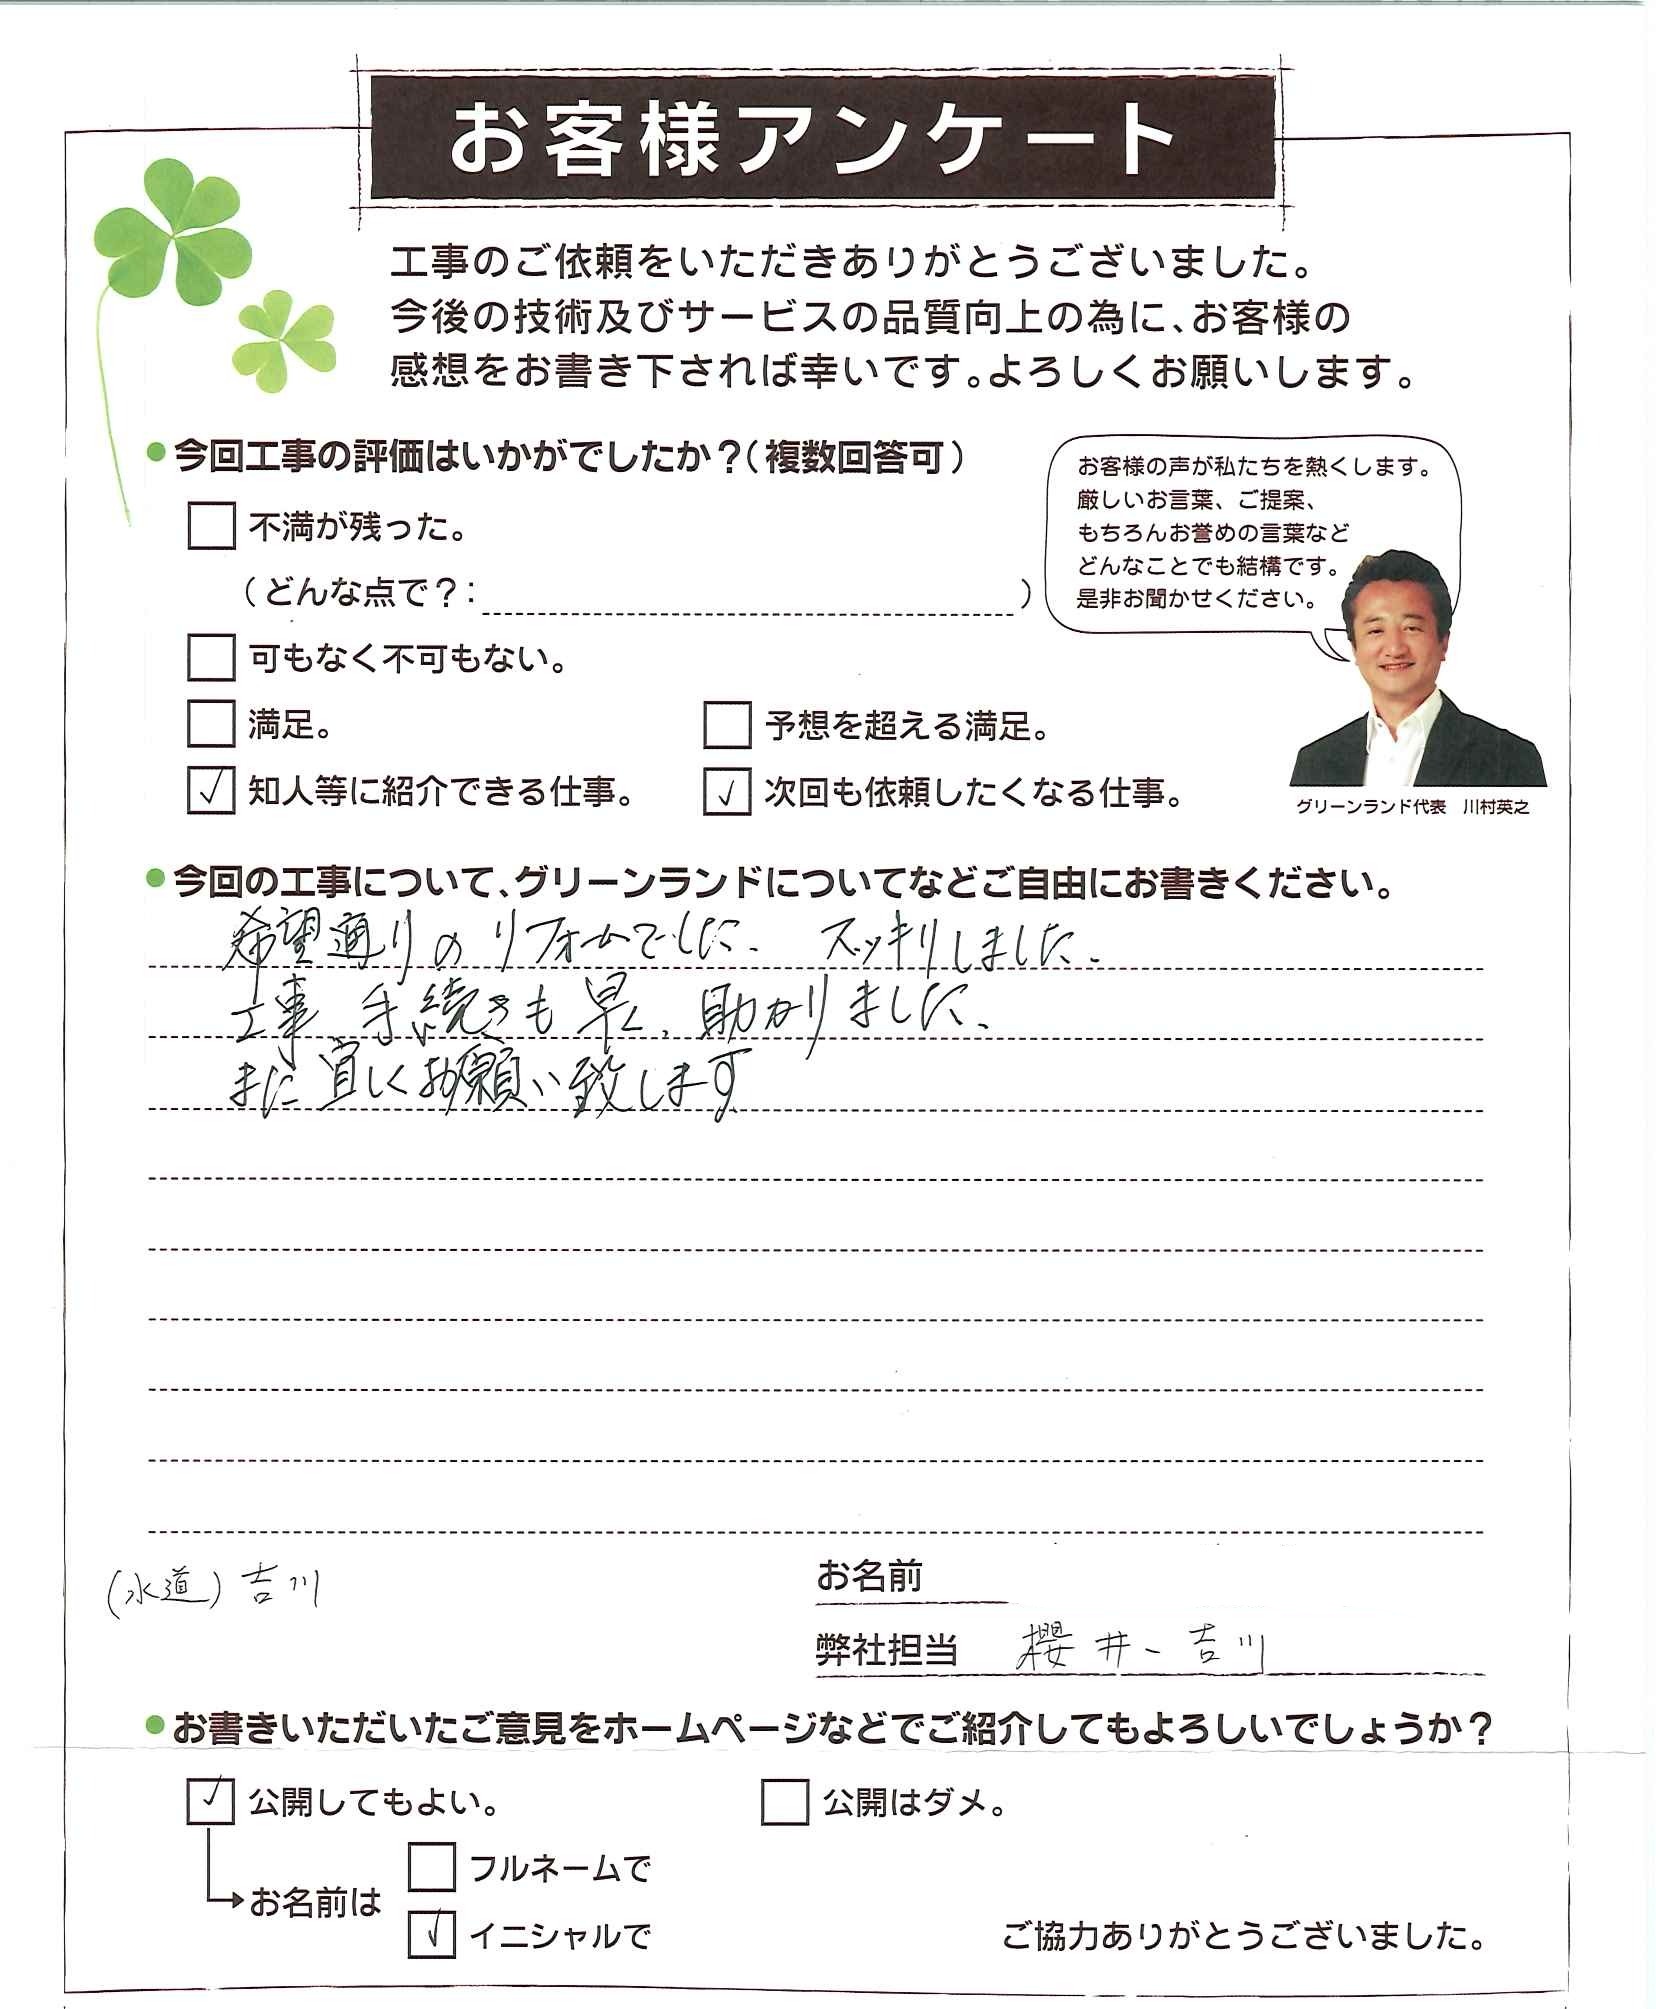 お客様アンケート
工事のご依頼をいただきありがとうございました。
今後の技術及びサービスの品質向上の為に、お客様の
感想をお書き下されば幸いです。よろしくお願いします。
●今回工事の評価はいかがでしたか？（複数回答可）
お客様の声が私たちを熱くします。
厳しいお言葉、ご提案、
もちろんお誉めの言葉など
どんなことでも結構です。
是非お聞かせください。
グリーンランド代表 川村英之
□ 不満が残った。
（どんな点で？： ）
□ 可もなく不可もない。
□ 満足。 □ 予想を超える満足。
☑ 知人等に紹介できる仕事。 ☑ 次回も依頼したくなる仕事。
●今回の工事について、グリーンランドについてなどご自由にお書きください。
希望通りの リフォームでした。 スッキリしました。
工事 手続きも早く、助かりました。
また宜しくお願い致します
(水道) 吉川
お名前
弊社担当 櫻井、吉川
●お書きいただいたご意見をホームページなどでご紹介してもよろしいでしょうか？
☑ 公開してもよい。 □ 公開はダメ。
お名前は □ フルネームで
☑ イニシャルで
ご協力ありがとうございました。